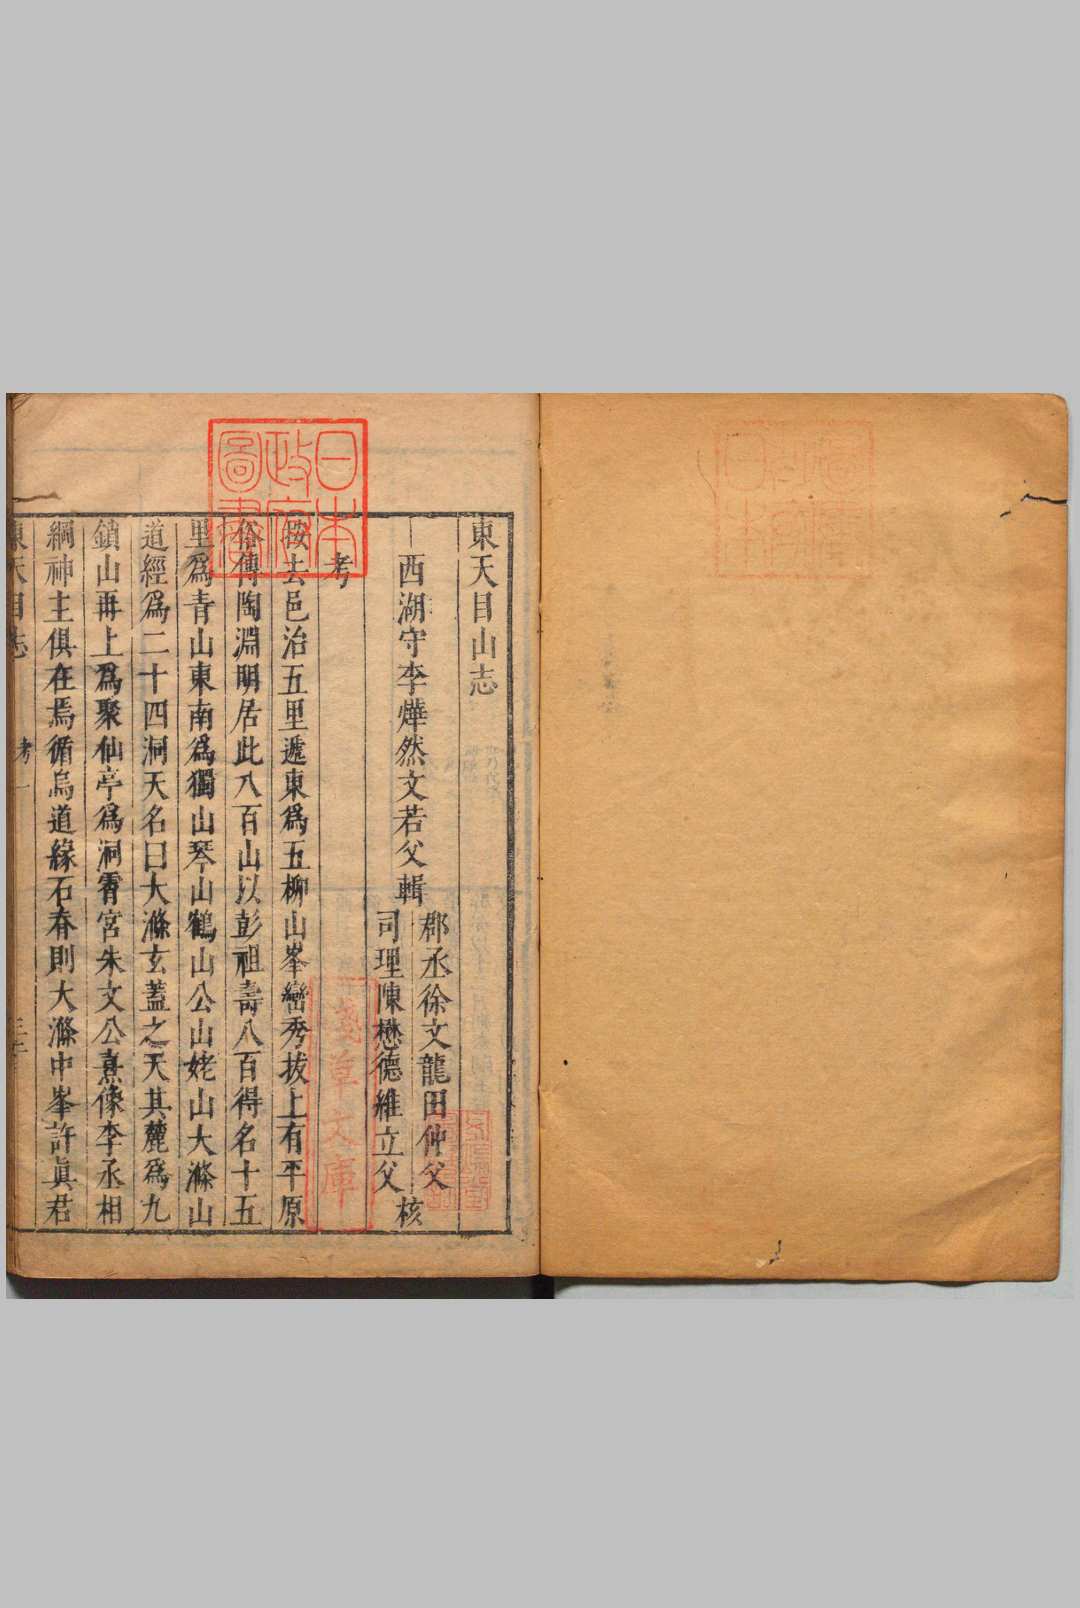 東天目山志
西湖守李燁然文若父輯
郡丞徐文龍田仲父
司理陳懋德維立父
核
考
按去邑治五里遞東爲五柳山峯巒秀拔上有平原
俗傳陶淵明居此八百山以彭祖壽八百得名十五
里爲青山東南爲獨山琴山鶴山公山姥山大滌山
道經爲二十四洞天名曰大滌玄蓋之天其麓爲九
鎖山再上爲聚仙亭爲洞霄宮朱文公熹像李丞相
綱神主俱在焉循鳥道緣石脊則大滌中峯許眞君
東天目志
考
一
日本
政府
圖書
淺草文庫